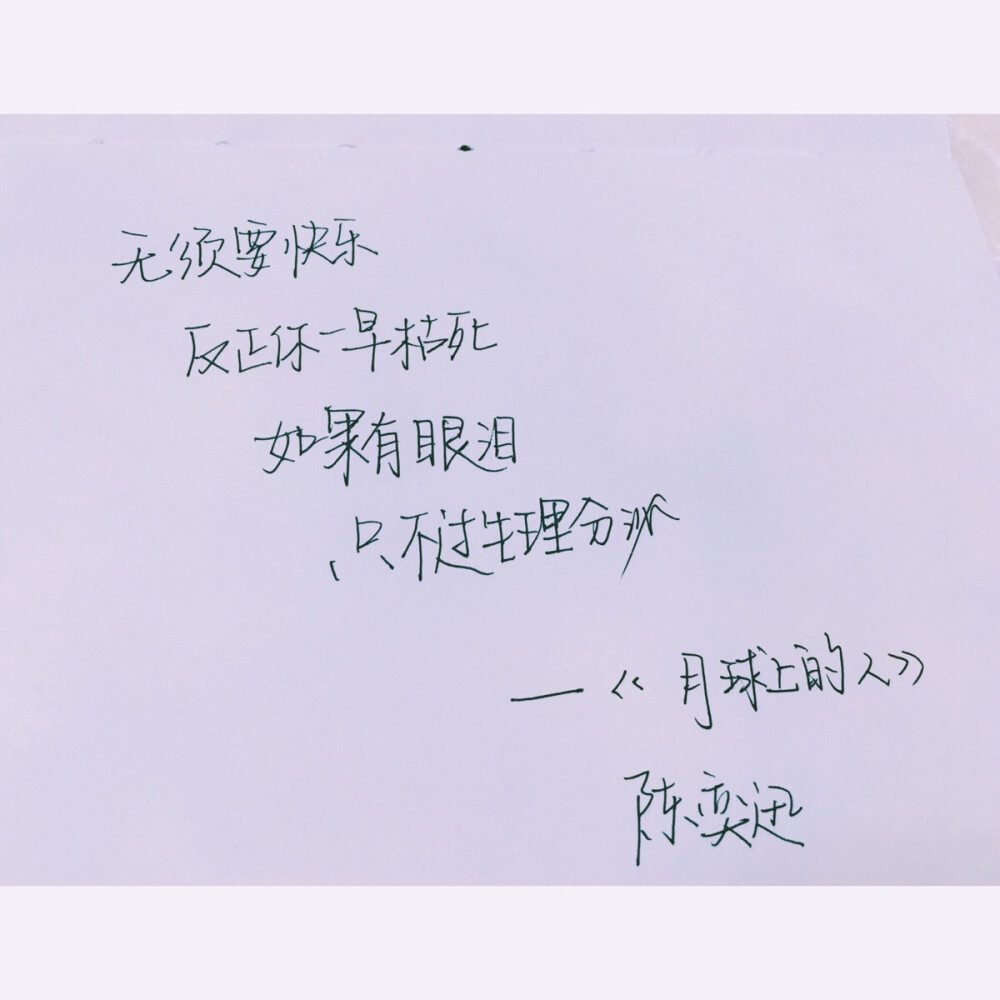 无须要快乐
反正你一早枯死
如果有眼泪
只不过生理分派
—《月球上的人》
陈奕迅